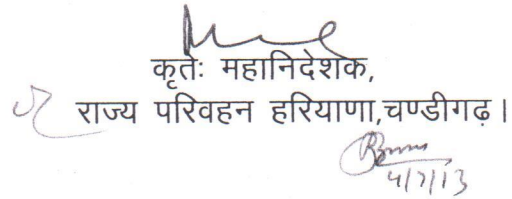 कृतेः महानिदेशक,
राज्य परिवहन हरियाणा,चण्डीगढ़।
4/7/13